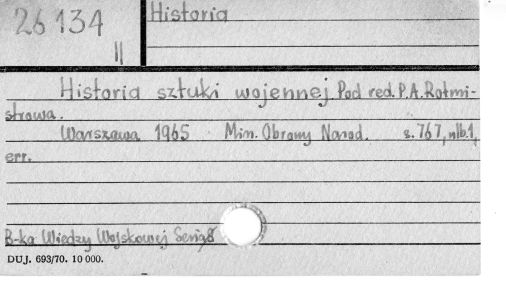 26134
II
Historia
Historia sztuki wojennej. Pod red. P.A. Rotmi-
strowa.
Warszawa 1965 Min. Obrony Narod. s. 767, nlb.1,
err.
B-ka Wiedzy Wojskowej Seria
DUJ. 693/70. 10 000.